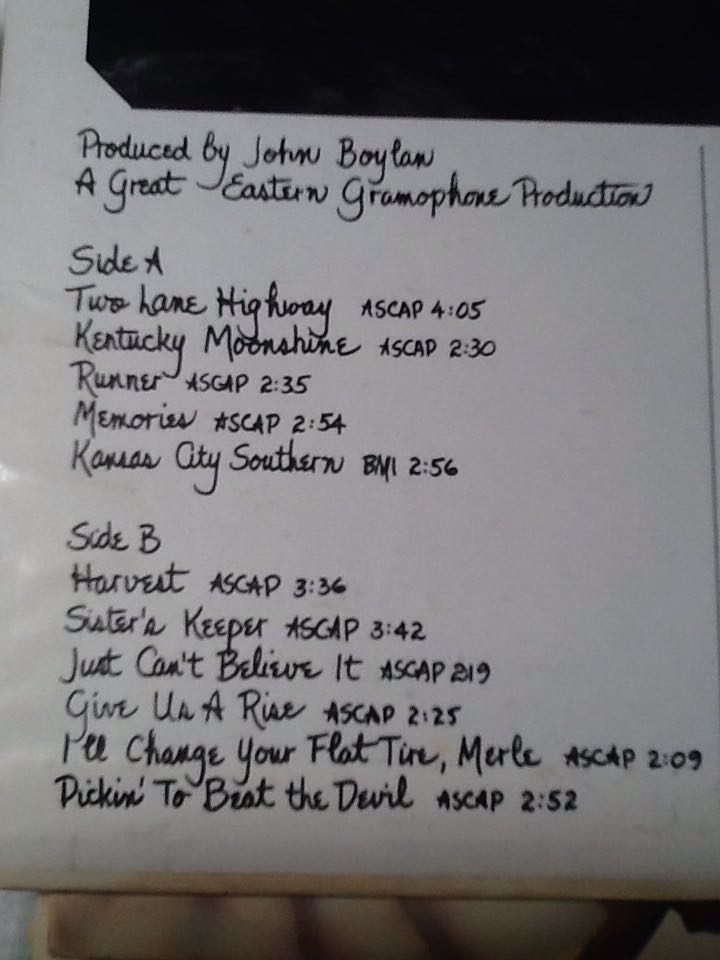 Produced by John Boylan
A Great Eastern Gramophone Production
Side A
Two Lane Highway ASCAP 4:05
Kentucky Moonshine ASCAP 2:30
Runner ASCAP 2:35
Memories ASCAP 2:54
Kansas City Southern BMI 2:56
Side B
Harvest ASCAP 3:36
Sister's Keeper ASCAP 3:42
Just Can't Believe It ASCAP 2:19
Give Us A Rise ASCAP 2:25
I'll Change Your Flat Tire, Merle ASCAP 2:09
Pickin' To Beat the Devil ASCAP 2:52